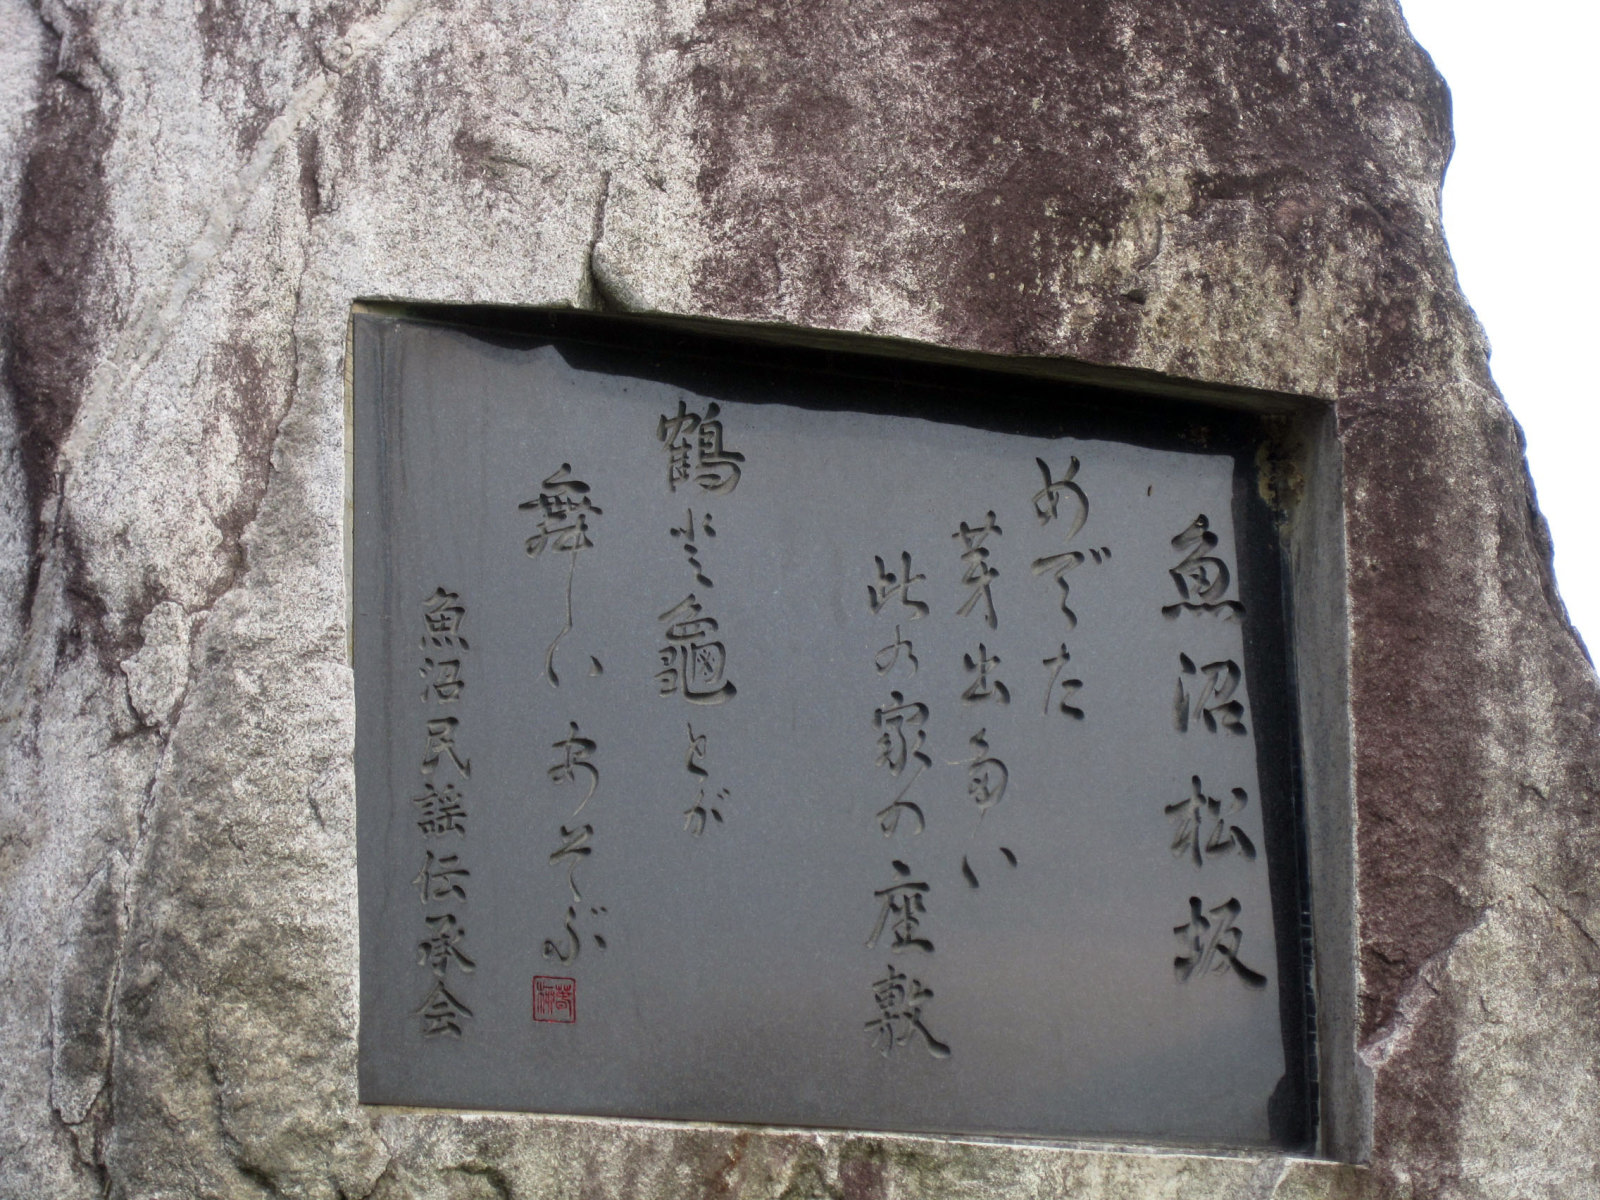 魚沼松坂
めでた
芽出多い
此の家の座敷
鶴と亀とが
舞しい あそぶ
魚沼民謡伝承会